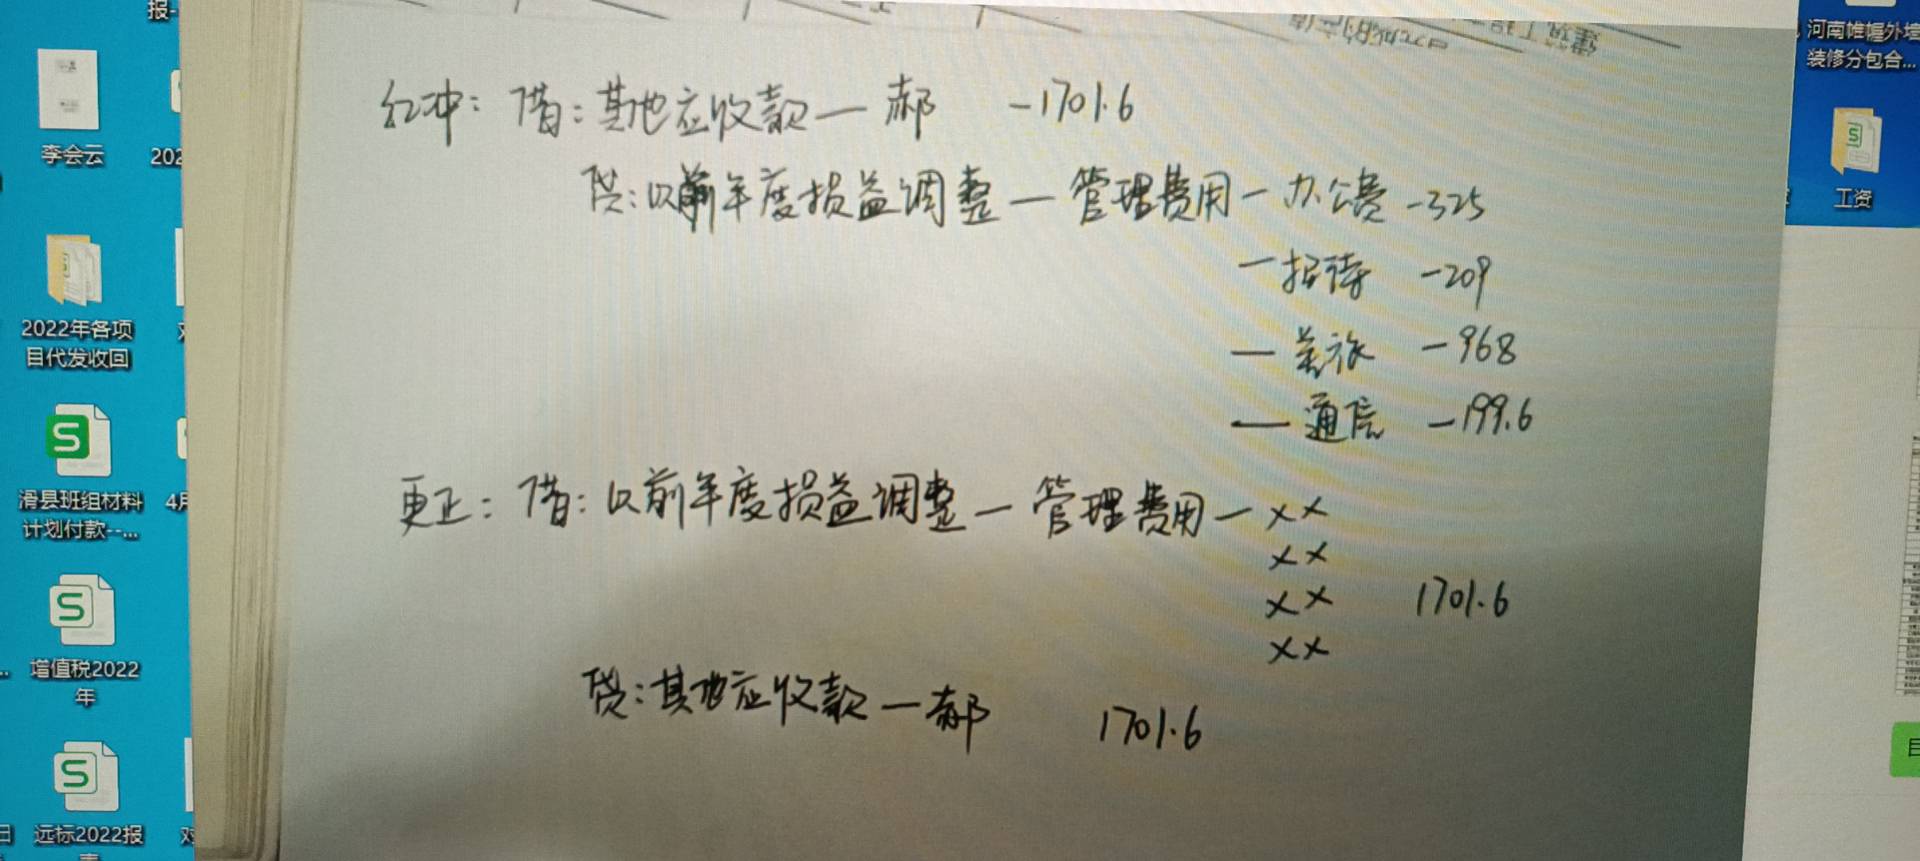 报-
李会云
202
2022年各项
目代发收回
滑县班组材料
计划付款--...
4月
增值税2022
年
远标2022报
表
河南帷幄外墙
装修分包合...
工资
红冲: 借: 其他应收款 — 郝 -1701.6
贷: 以前年度损益调整 — 管理费用 - 办公费 -325
- 招待 -209
— 差旅 -968
— 通信 -199.6
更正: 借: 以前年度损益调整 — 管理费用 — ××
××
×× 1701.6
××
贷: 其他应收款 — 郝 1701.6